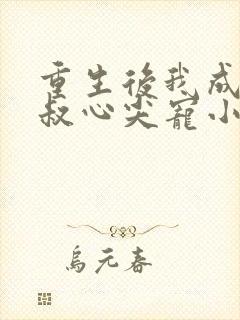 重生後我成
叔心尖寵小
烏元春